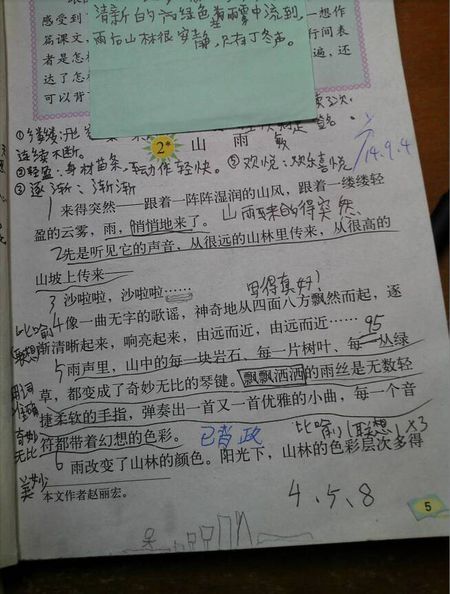 清新的
雨后山林很安静,只有丁冬声。
感受到
一想作
篇课文,
行间表
者是怎
遍,还
达了怎
可以背
连续不断。
2* 山雨
②轻盈:身材苗条,动作轻快。⑤欢悦:欢乐喜悦
14.9.4
③逐渐:渐渐
1来得突然——跟着一阵阵湿润的山风,跟着一缕缕轻
盈的云雾,雨,悄悄地来了。山雨来的得突然
2先是听见它的声音,从很远的山林里传来,从很高的
山坡上传来——
写得真好!
3沙啦啦,沙啦啦……
4像一曲无字的歌谣,神奇地从四面八方飘然而起,逐
比喻
渐清晰起来,响亮起来,由远而近,由远而近……
联想
95
5雨声里,山中的每一块岩石、每一片树叶、每一丛绿
草,都变成了奇妙无比的琴键。飘飘洒洒的雨丝是无数轻
用词
准确
捷柔软的手指,弹奏出一首又一首优雅的小曲,每一个音
奇妙
无比
符都带着幻想的色彩。已背
比喻(联想)×3
6雨改变了山林的颜色。阳光下,山林的色彩层次多得
美妙
本文作者赵丽宏。
4、5、8
5